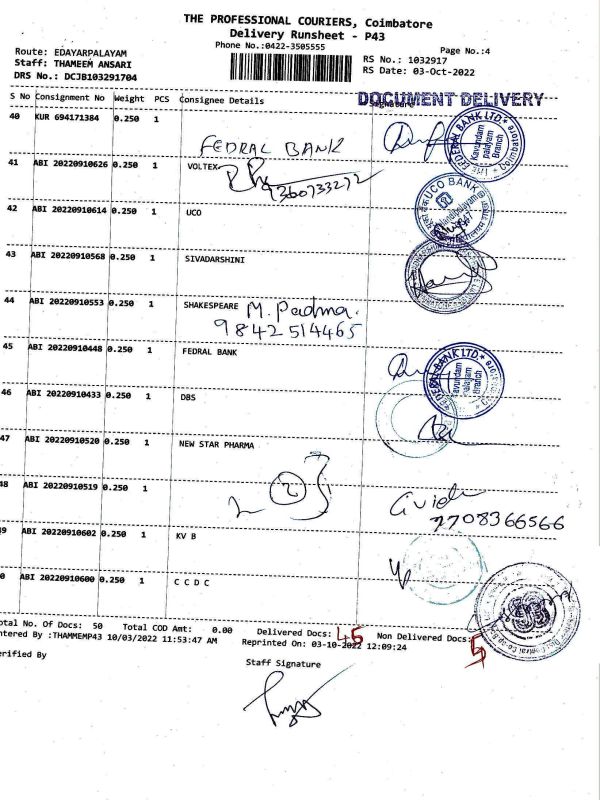 THE PROFESSIONAL COURIERS, Coimbatore
Delivery Runsheet - P43
Phone No.:0422-3505555
Page No.:4
Route: EDAYARPALAYAM
Staff: THAMEEM ANSARI
DRS No.: DCJB103291704
RS No.: 1032917
RS Date: 03-Oct-2022
S No Consignment No Weight PCS Consignee Details Signature
DOCUMENT DELIVERY
40 KUR 694171384 0.250 1
FEDRAL BANK
THE FEDERAL BANK LTD. Kavundam palayam Branch Coimbatore
41 ABI 20220910626 0.250 1 VOLTEX
9360733272
UCO BANK
42 ABI 20220910614 0.250 1 UCO
43 ABI 20220910568 0.250 1 SIVADARSHINI
44 ABI 20220910553 0.250 1 SHAKESPEARE M. Padma.
9842514465
45 ABI 20220910448 0.250 1 FEDRAL BANK
FEDERAL BANK LTD. Kavundam palayam Branch
46 ABI 20220910433 0.250 1 DBS
47 ABI 20220910520 0.250 1 NEW STAR PHARMA
48 ABI 20220910519 0.250 1
2
7708366566
49 ABI 20220910602 0.250 1 KV B
0 ABI 20220910600 0.250 1 C C D C
Total No. Of Docs: 50 Total COD Amt: 0.00 Delivered Docs: 45 Non Delivered Docs: 5
Entered By :THAMMEMP43 10/03/2022 11:53:47 AM Reprinted On: 03-10-2022 12:09:24
Verified By
Staff Signature